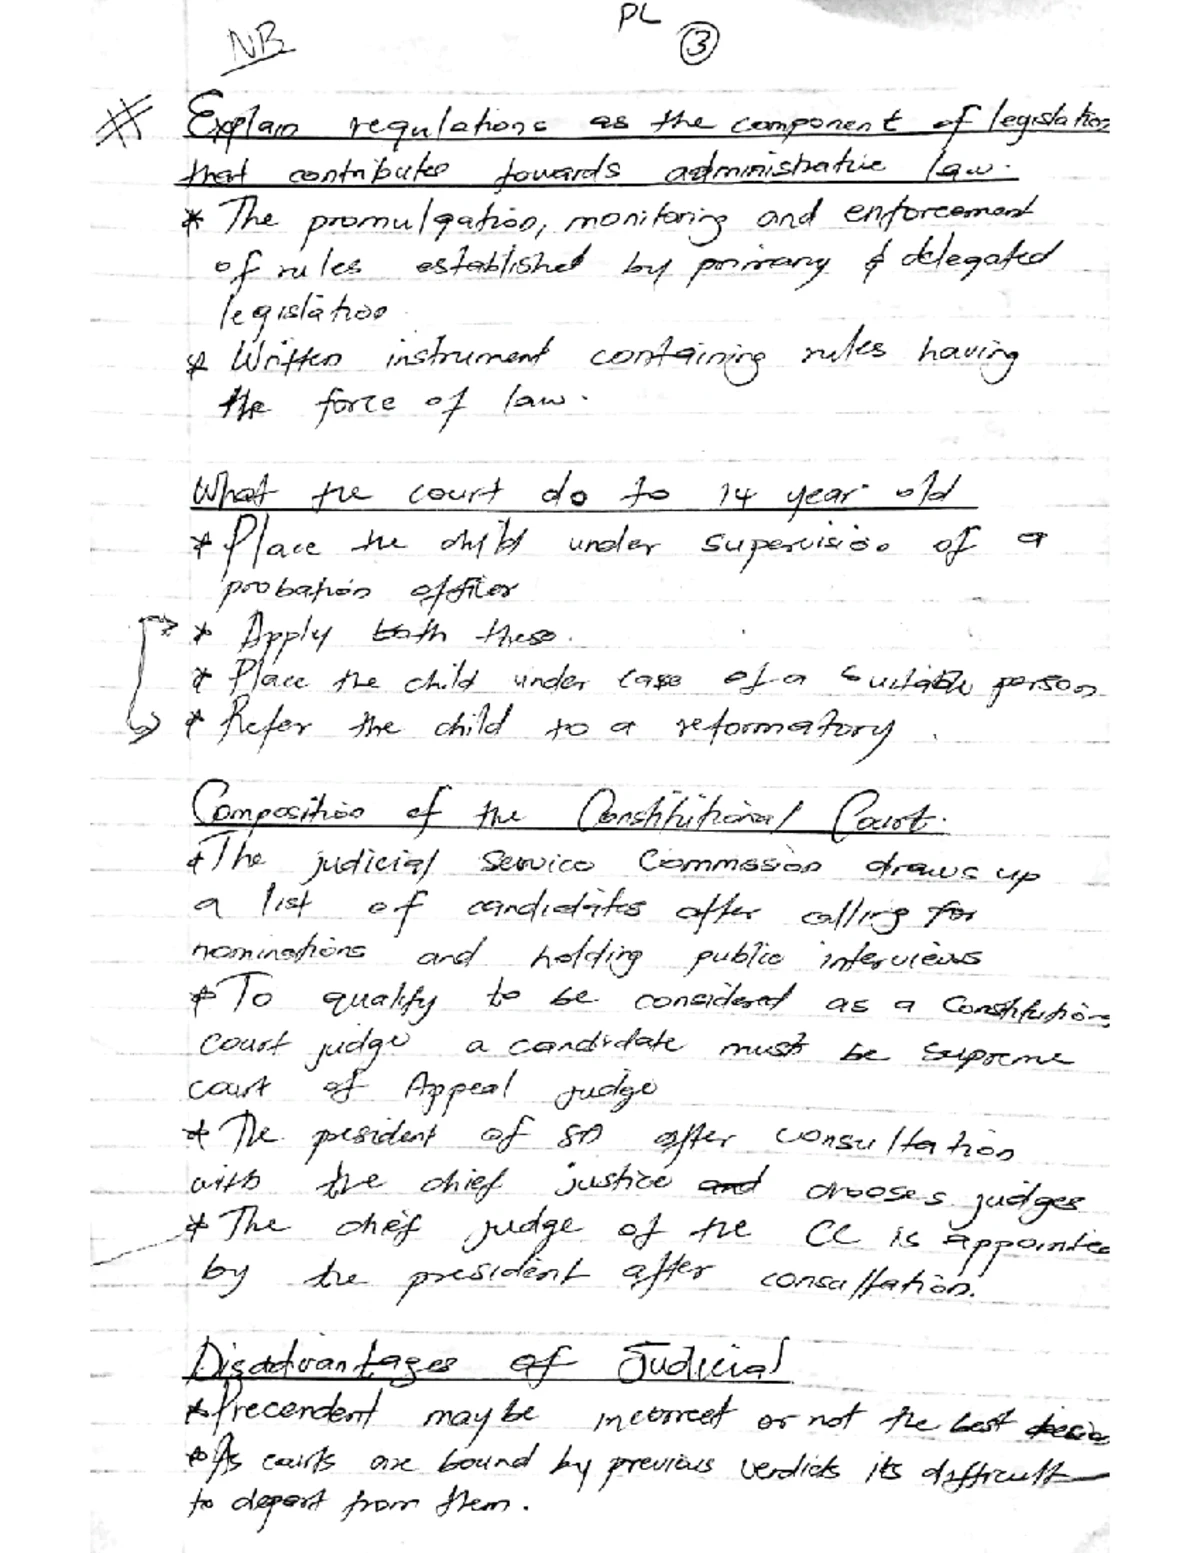 PL
NB
3
# Explain regulations as the component of legislation
that contribute towards administrative law.
* The promulgation, monitoring and enforcement
of rules established by primary & delegated
legislation
* Written instrument containing rules having
the force of law.
What the court do to 14 year old
* Place the child under supervision of a
probation officer
* Apply both these.
* Place the child under case of a suitable person
* Refer the child to a reformatory.
Composition of the Constitutional Court.
* The judicial Service Commission draws up
a list of candidates after calling for
nominations and holding public interviews
* To qualify to be considered as a Constitution
court judge a candidate must be supreme
court of Appeal judge
* The president of SA after consultation
with the chief justice and chooses judges
* The chief judge of the CC is appointed
by the president after consultation.
Disadvantages of Judicial
* Precendent may be incorrect or not the best
* As courts are bound by previous verdicts its difficult
to depart from them.